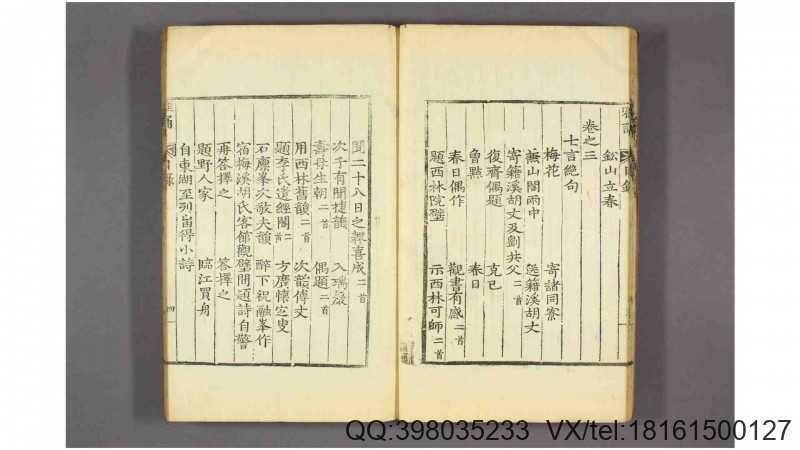 鉛山立春
卷之三
七言絕句
梅花 寄諸同寮
無山閣雨中
寄籍溪胡丈及劉共父二首 送籍溪胡丈
復齋偶題 克己
曾點 春日
春日偶作 觀書有感二首
題西林院壁 示西林可師二首
聞二十八日之報喜成二首
次子有聞捷韻 入瑞巖
壽母生朝二首 偶題二首
用西林舊韻二首 次韻傅丈
題李氏遺經閣二首 方廣懷定叟
石廩峯次敬夫韻 醉下祝融峯作
宿梅溪胡氏客館觀壁間題詩自警
再答擇之 答擇之
題野人家 臨江買舟
自東湖至列岫得小詩
目錄
四
QQ:398035233 VX/tel:18161500127